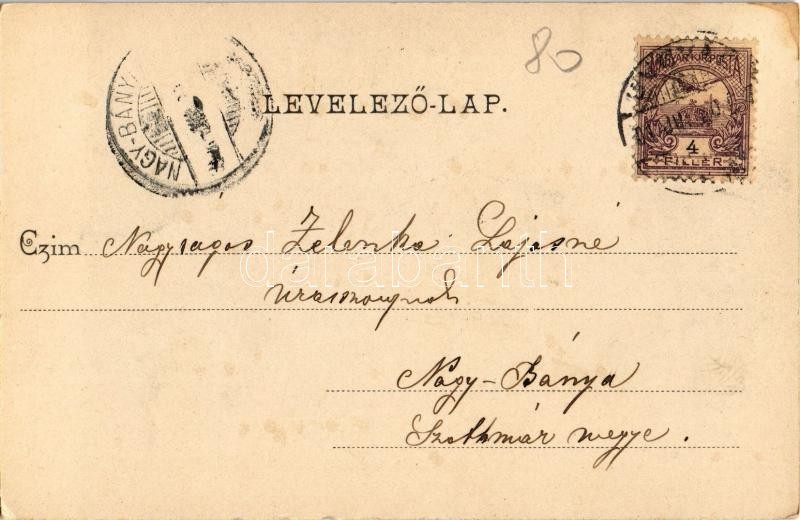 80
NAGY-BÁNYA
LEVELEZŐ-LAP.
MAGYAR KIR. POSTA
4
FILLÉR
Czim Nagyságos Zelenka Lajosné
Úrasszonynak
Nagy-Bánya
Szathmár megye.
darabanth